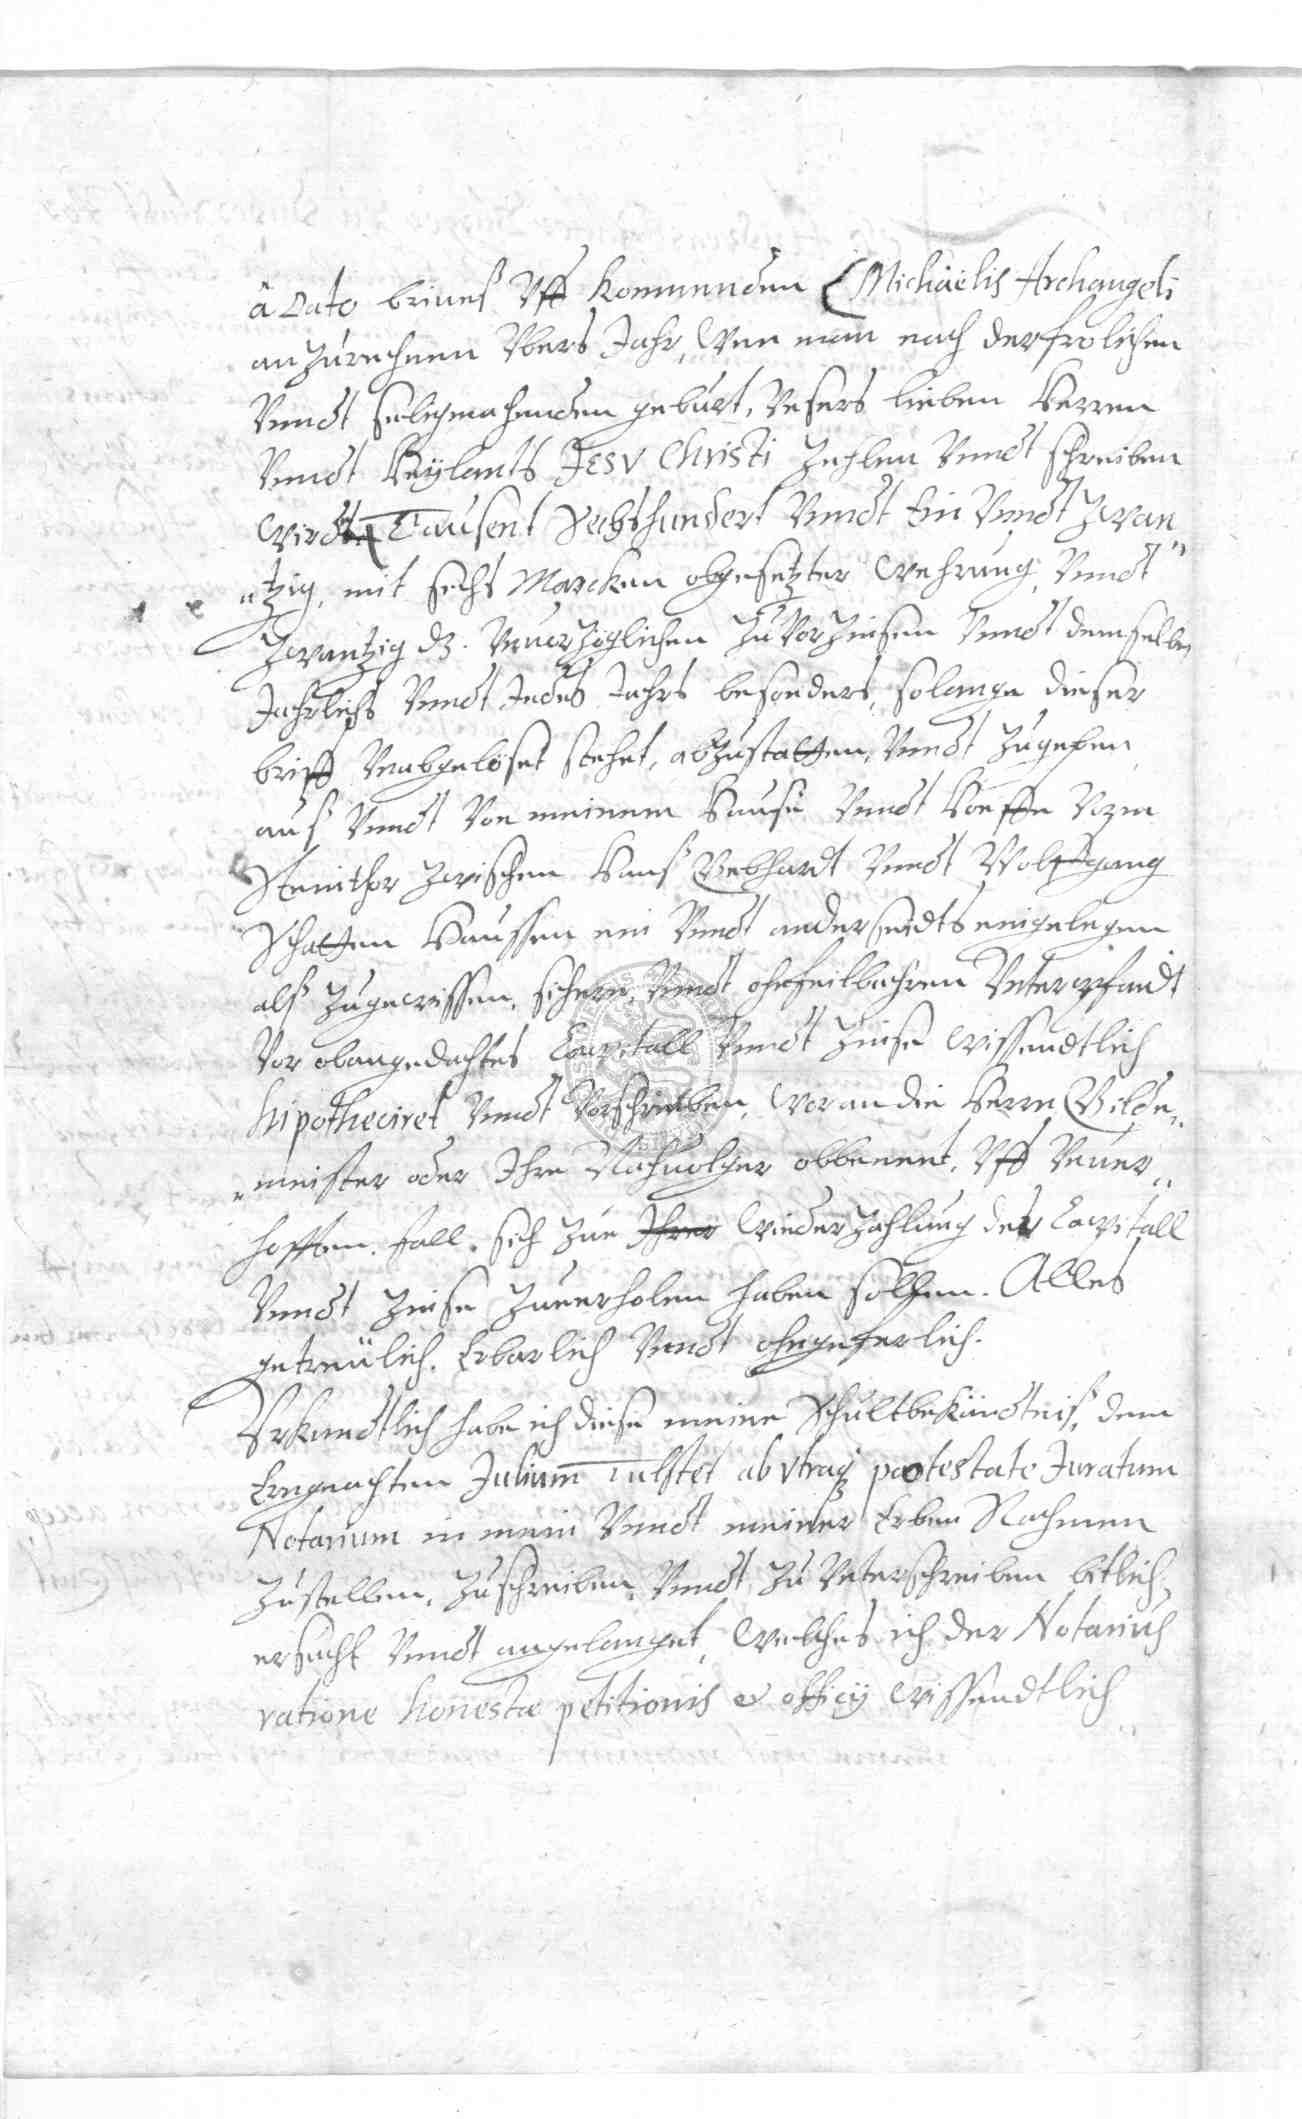 à Dato brieues Vff kommenden Michaëlis Archangeli
anzurechnen Vbers Jahr, Wen man nach der frolichen
Vnndt seligmachenden geburt, Vnsers lieben Herren
Vnndt Heÿlants JESV Christi Zehlen Vnndt schreiben
Wirdt Tausent Sechshundert Vnndt Ein Vnndt Zwan„
„tzig, mit sechs Marcken obgesetzter Wehrung, Vnndt
Zwantzig d. Vnuerzöglichen Zu Vorzinsen Vnndt demselben
Jahrlichs Vnndt Jedes Jahrs besonders, solange dieser
brieff Vnabgelöset stehet, abzustatten, Vnndt zugeben,
auß Vnndt Von meinem Hause Vnndt Hoeffe Vorm
Steinthor Zwischen Hanß Gebhardt Vnndt Wolffgang
Schatten Heussern ein Vnndt anderseidts eingelegen
alß zugewissen, sichern, Vnndt ohnfeilbahren Vnterpfandt
Vor obangedachtes Capitall Vnndt Zinse Wissendtlich
hipotheciret Vnndt Vorschrieben, Woran die Herrn Gilde„
„meister oder Ihre Nachuolger obbenent, Vff Vnuer„
hofften fall, sich zue Ihrer Wiederzahlung der Capitall
Vnndt Zinse Zuerholen haben sollen. Alles
getreülich, Erbarlich Vnndt ohngeferlich.
Vrkundtlich habe ich diese meine Schultbekändtniß, dem
Erngeachten Julium ab vtraq potestate Juratum
Notarium in mein Vnndt meiner Erben Nahmen
Zustellen, Zuschreiben, Vnndt Zu Vnterschreiben bitlich,
ersucht Vnndt angelanget, Welches ich der Notarius
ratione honestæ petitionis et officij Wissendtlich